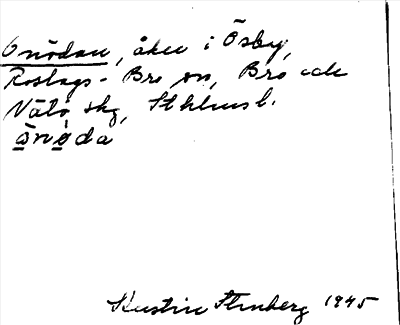 Onödan, åker i Ösby,
Roslags-Bro sn, Bro och
Vätö skg, Sthlms l.
ànøda
Kerstin Stenberg 1945